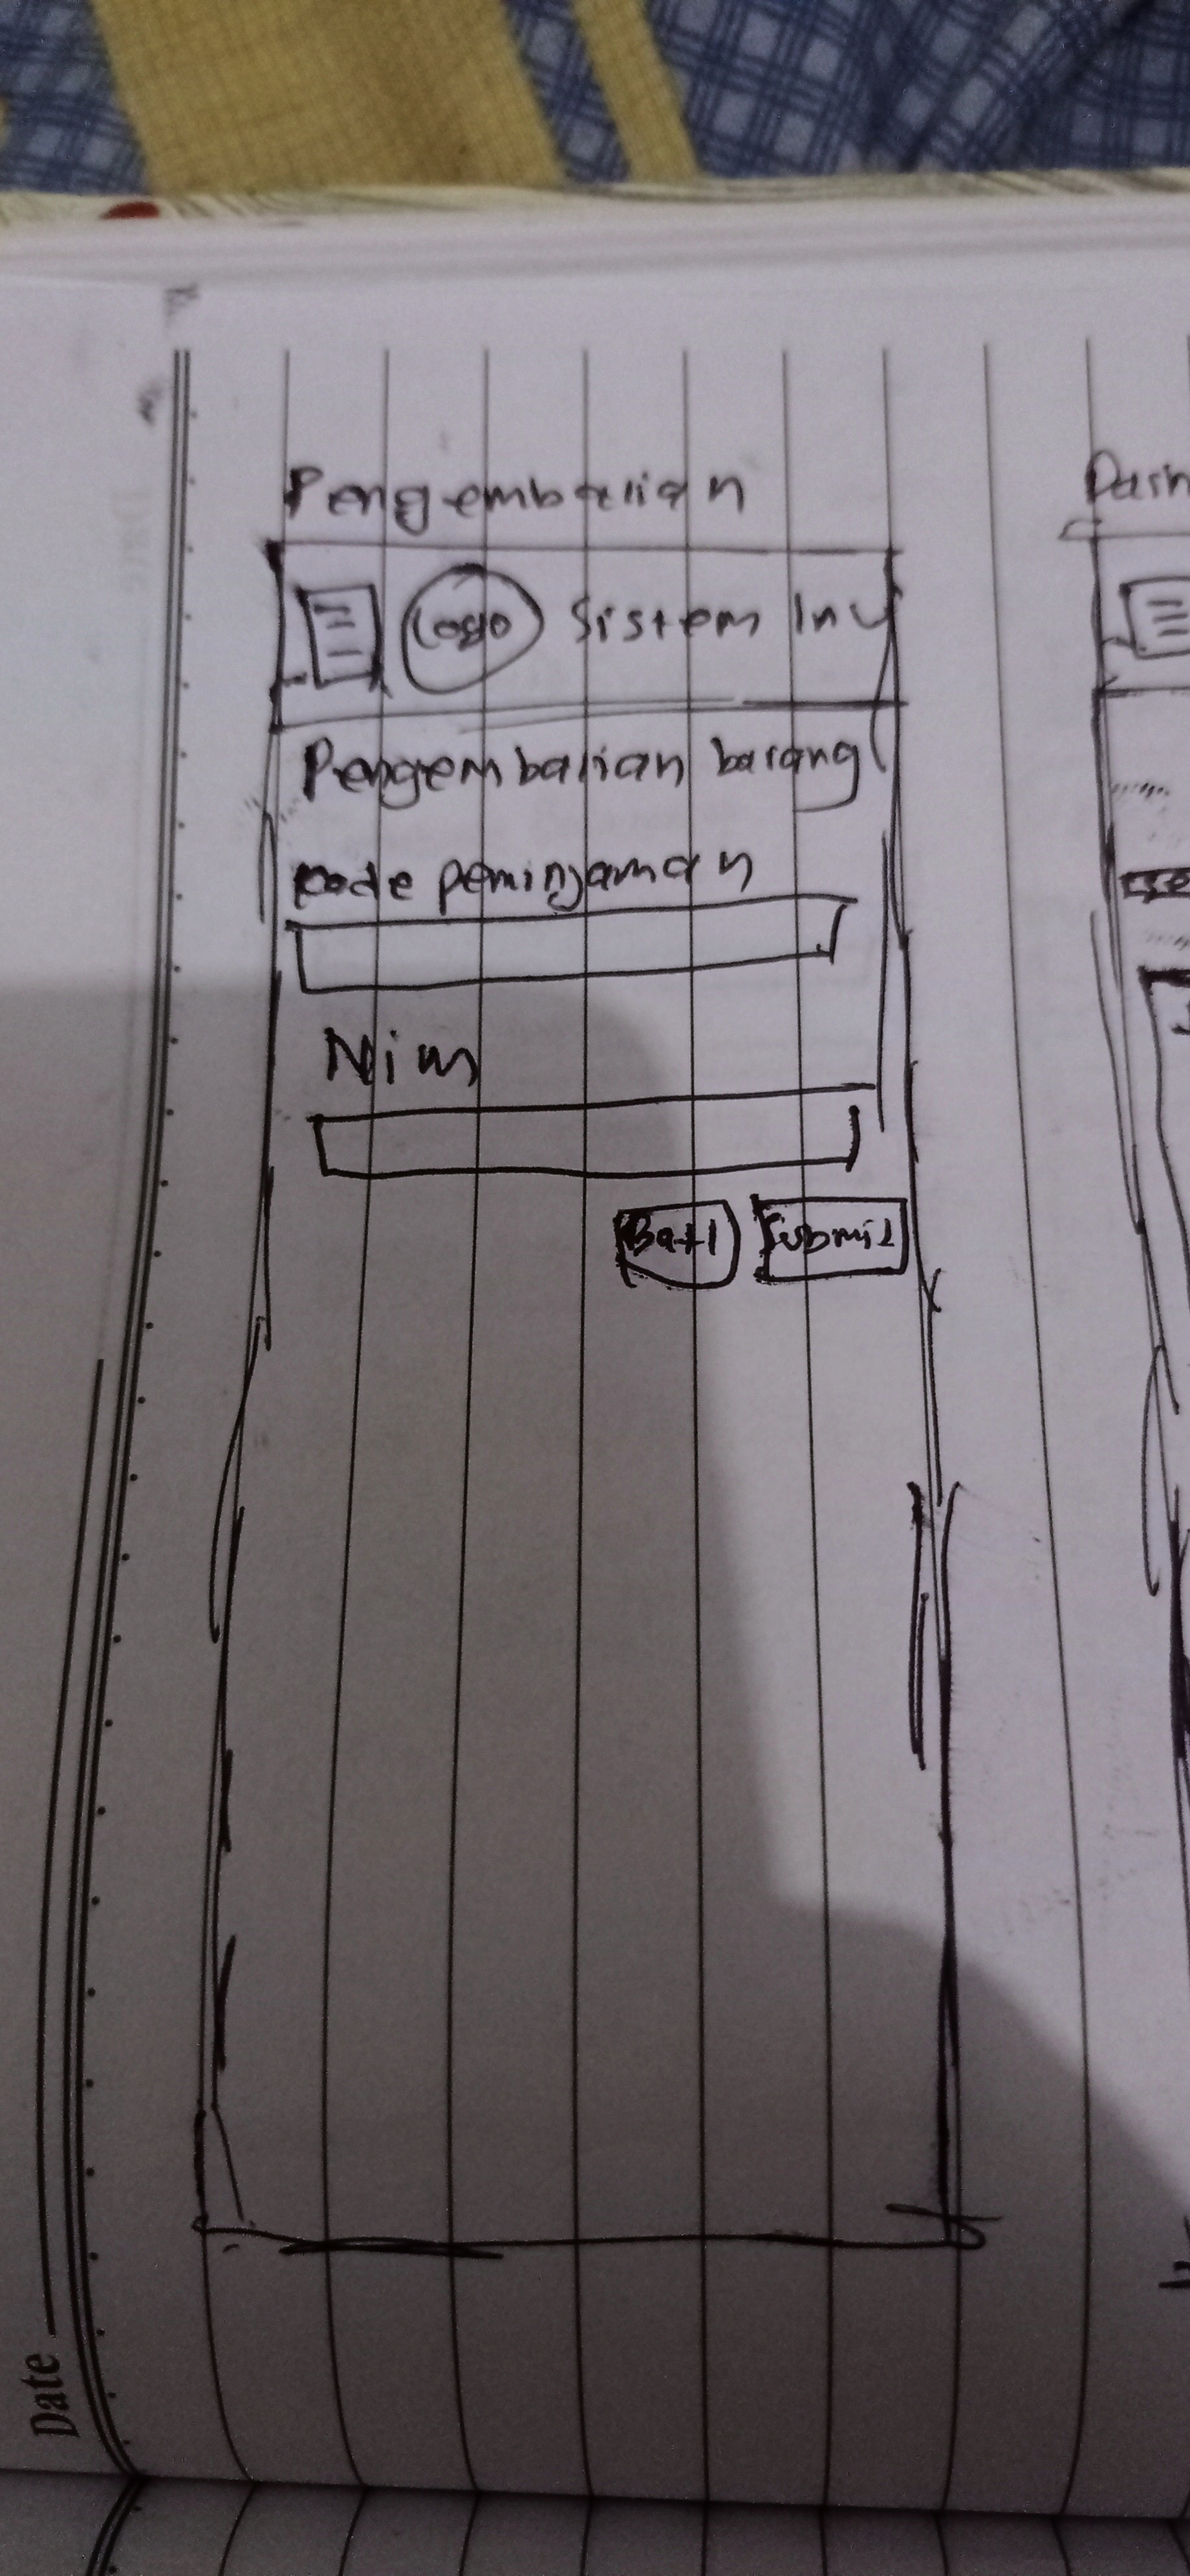 Pengembalian
Logo Sistem Inv
Pengembalian barang
kode peminjaman
Nim
Batl
Submit
Date